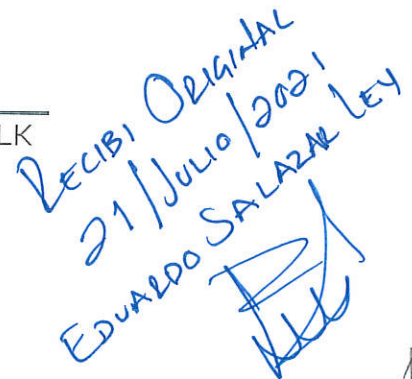 LK
RECIBI ORIGINAL
21/JULIO/2021
EDUARDO SALAZAR LEY